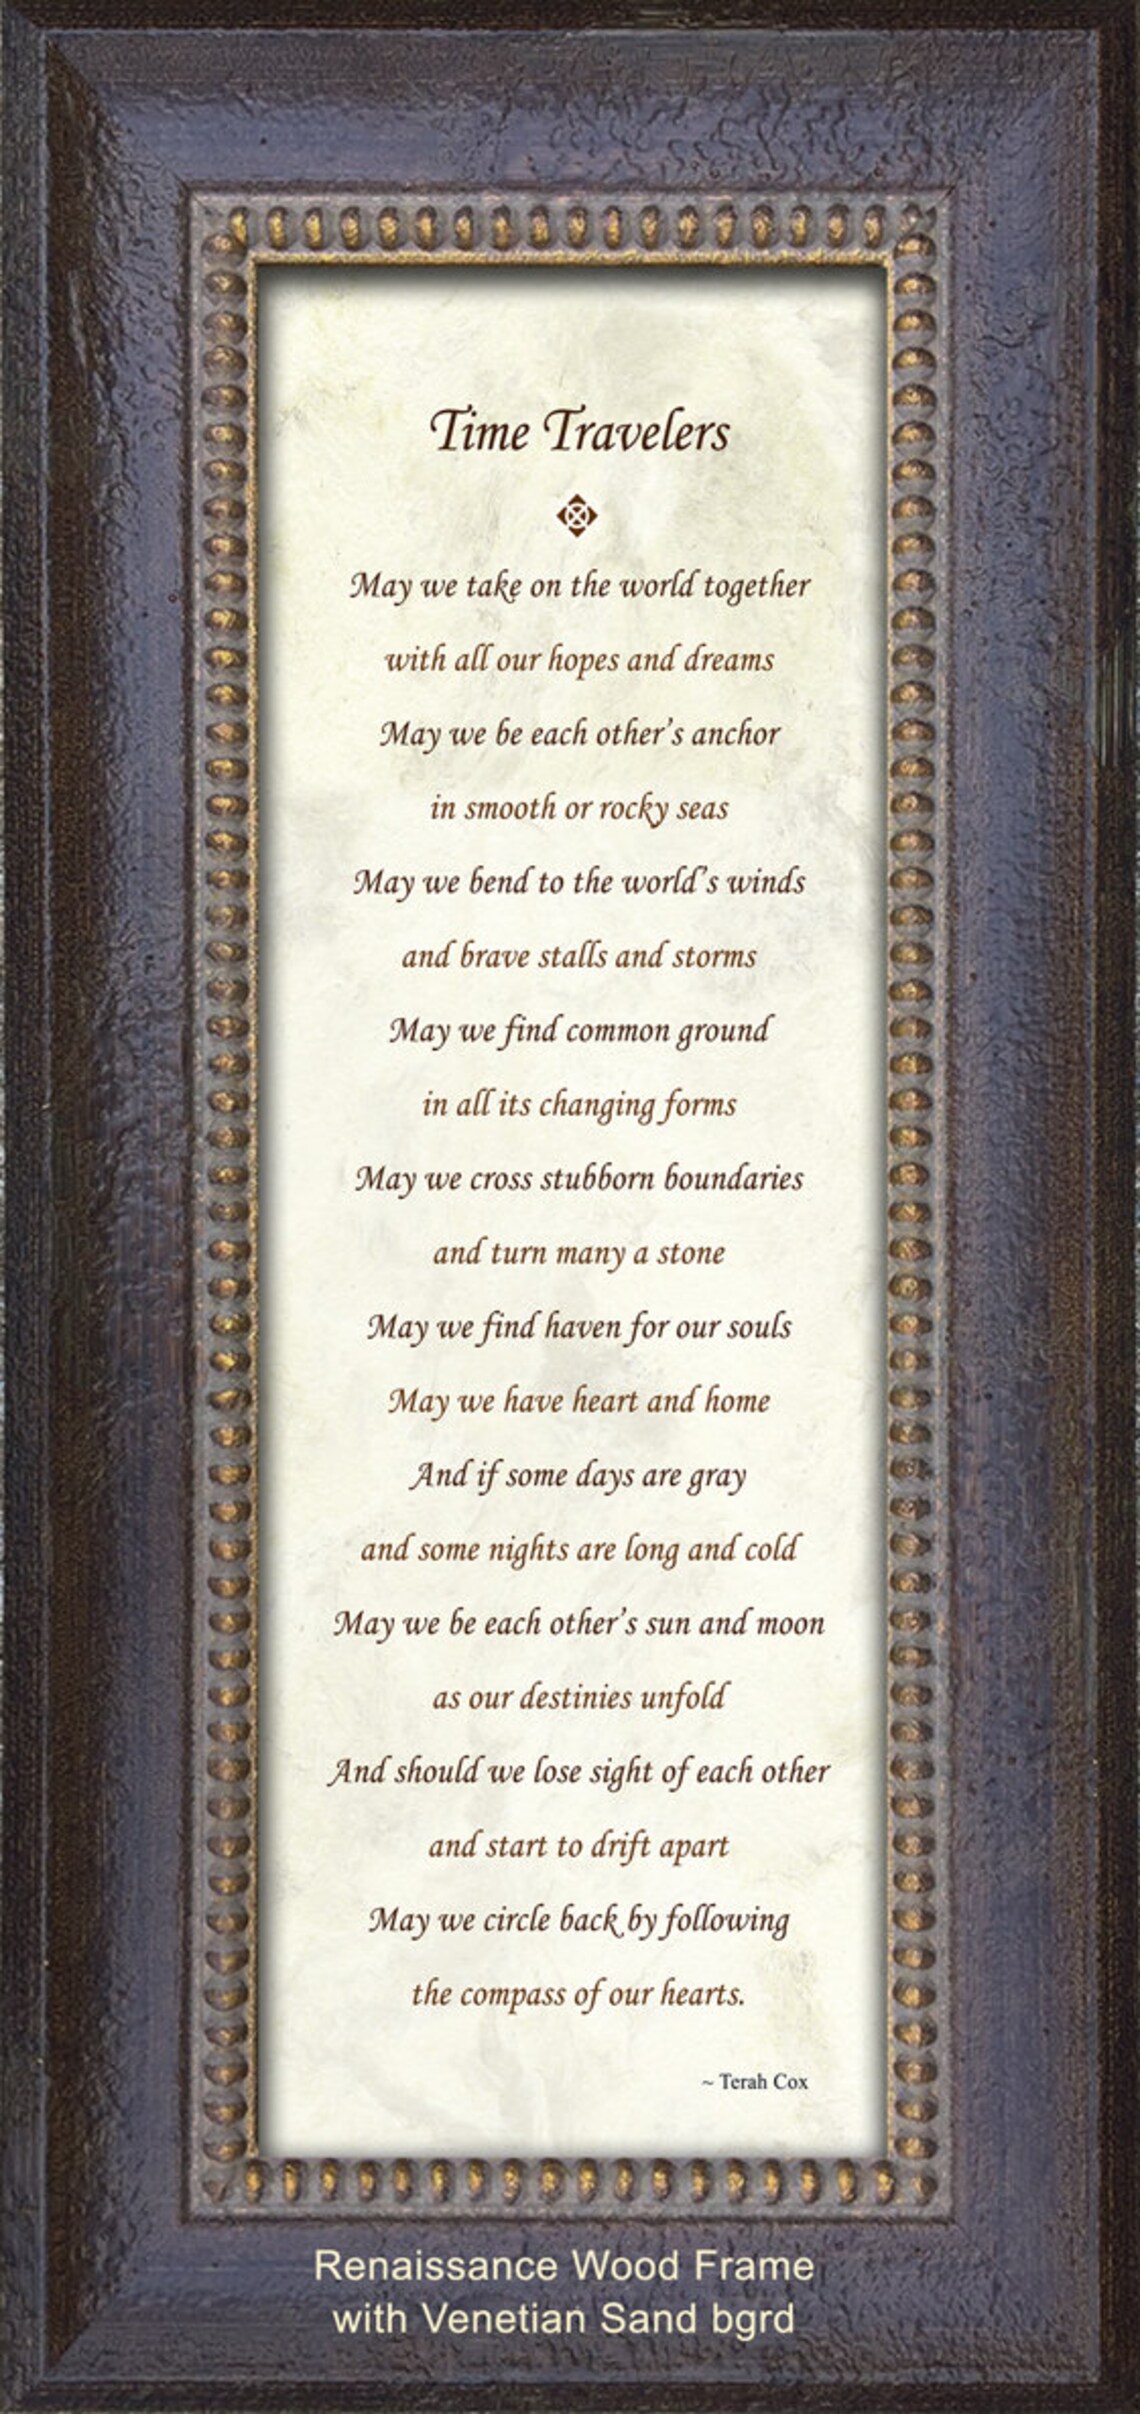 Time Travelers
May we take on the world together
with all our hopes and dreams
May we be each other’s anchor
in smooth or rocky seas
May we bend to the world’s winds
and brave stalls and storms
May we find common ground
in all its changing forms
May we cross stubborn boundaries
and turn many a stone
May we find haven for our souls
May we have heart and home
And if some days are gray
and some nights are long and cold
May we be each other’s sun and moon
as our destinies unfold
And should we lose sight of each other
and start to drift apart
May we circle back by following
the compass of our hearts.
~ Terah Cox
Renaissance Wood Frame
with Venetian Sand bgrd